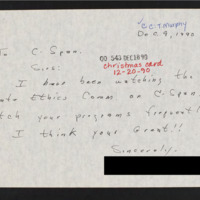 CC: T. Murphy
Dec. 9, 1990
To C. Span.
Sirs:
00 543 DEC 18 90
christmas card
12-20-90
I have been watching the
Ethics Comm on C-Span
your programs frequent
I think your Great!!
Sincerely,